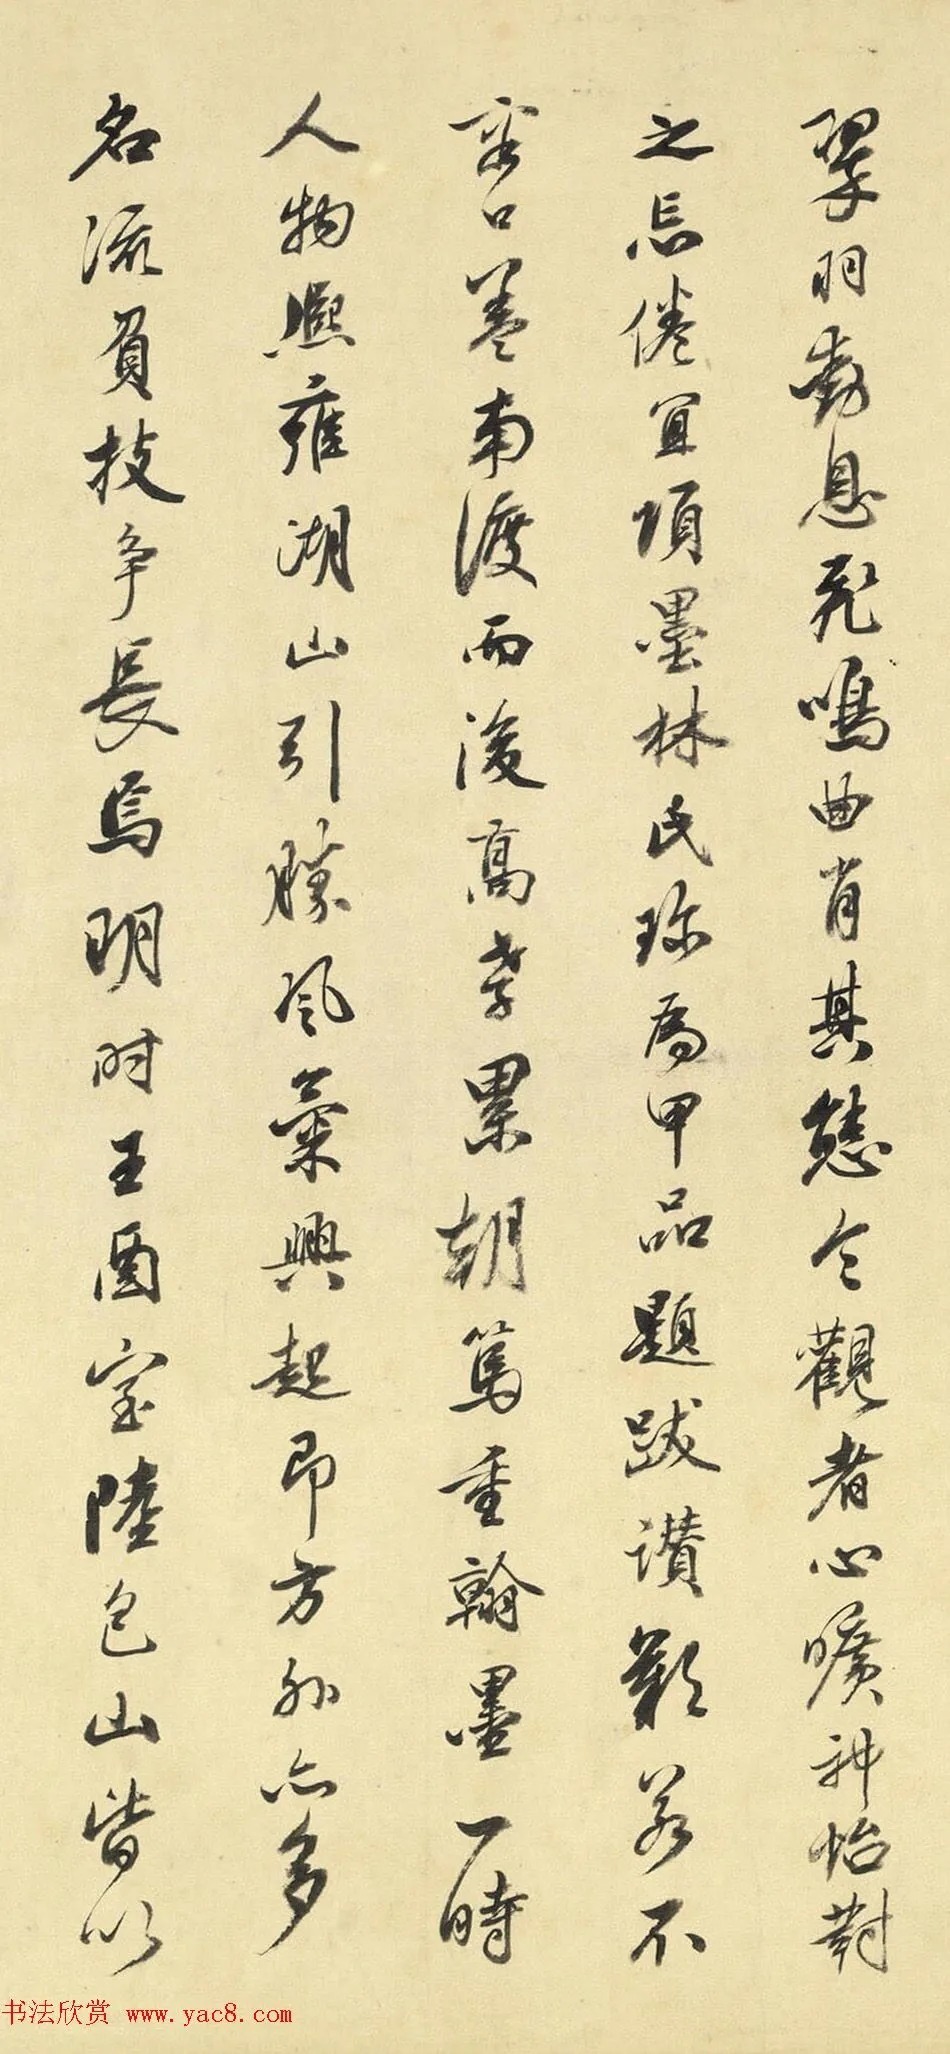 翠羽動息飛鳴曲肖其態令觀者心曠神怡對
之忘倦宜項墨林氏珍為甲品題跋讚歎若不
容口蓋南渡而後高孝累朝篤重翰墨一時
人物熙雍湖山引勝風氣興起即方外亦多
名流負技爭長焉明時王酉室陸包山皆以
书法欣赏 www.yac8.com